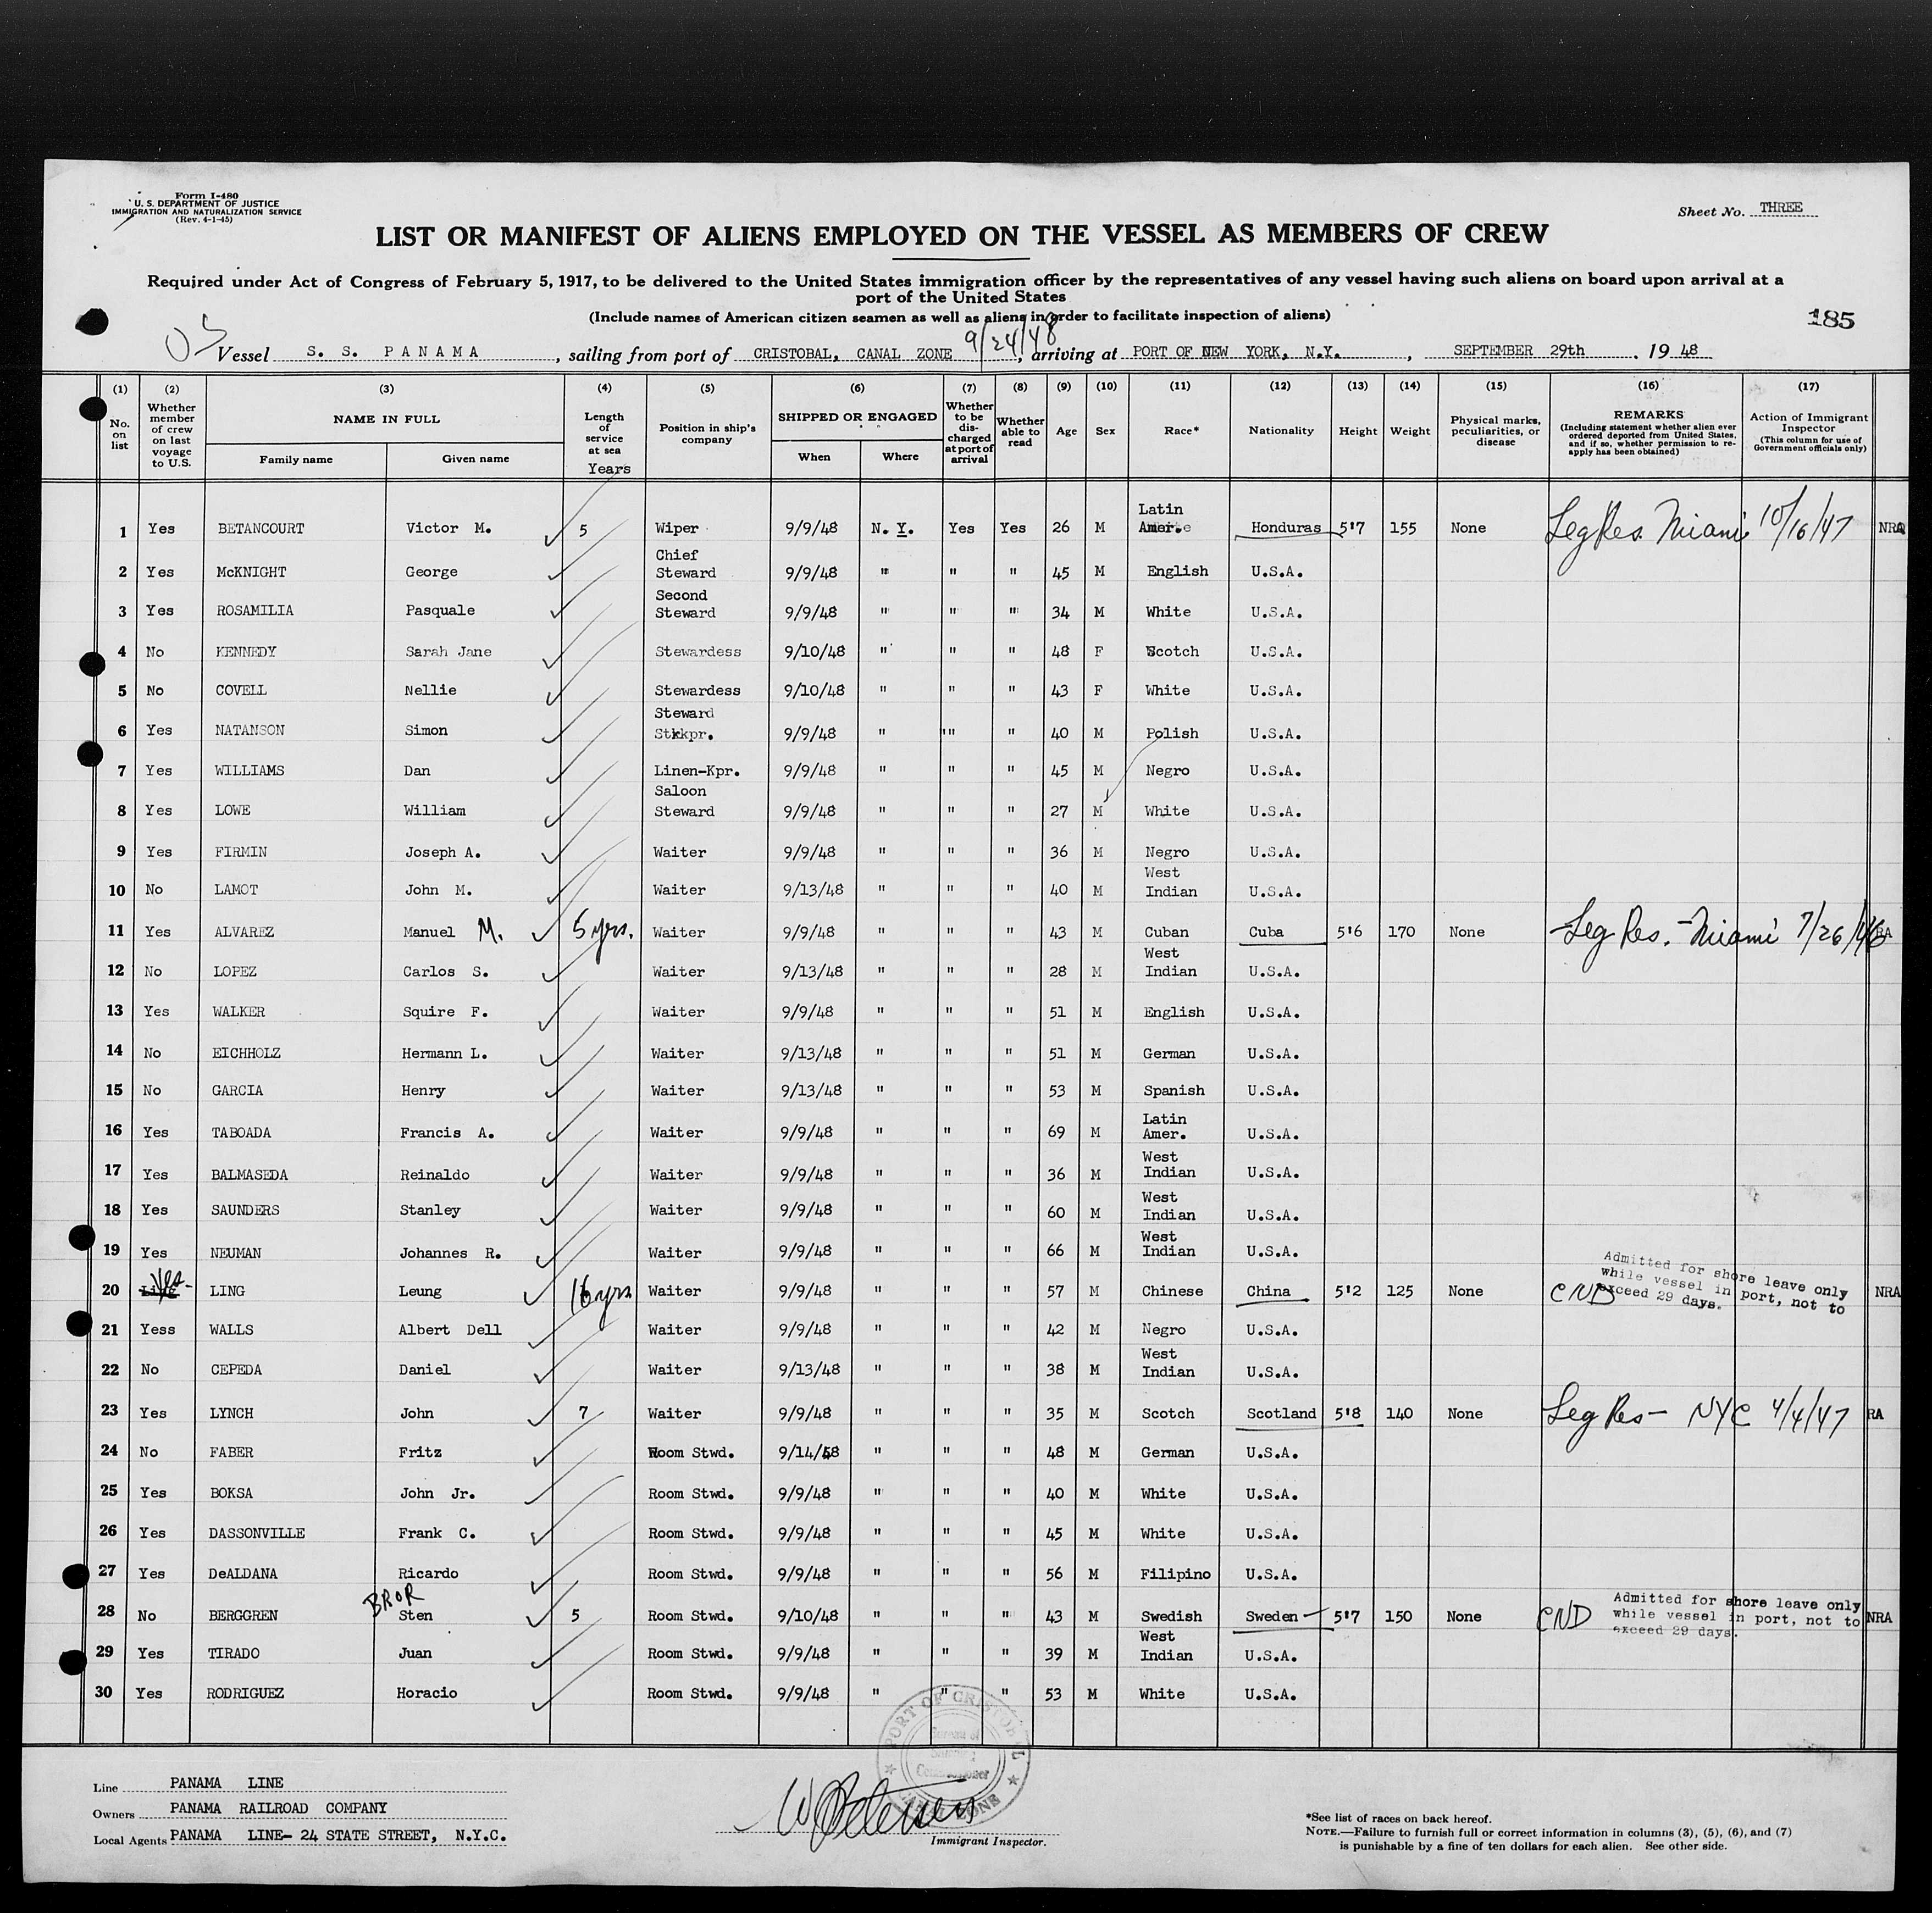 Form I-480
U. S. DEPARTMENT OF JUSTICE
IMMIGRATION AND NATURALIZATION SERVICE
(Rev. 4-1-45)
Sheet No. THREE
LIST OR MANIFEST OF ALIENS EMPLOYED ON THE VESSEL AS MEMBERS OF CREW
Required under Act of Congress of February 5, 1917, to be delivered to the United States immigration officer by the representatives of any vessel having such aliens on board upon arrival at a
port of the United States
(Include names of American citizen seamen as well as aliens in order to facilitate inspection of aliens)
185
9/24/48
Vessel S. S. PANAMA, sailing from port of CRISTOBAL, CANAL ZONE, arriving at PORT OF NEW YORK, N.Y., SEPTEMBER 29th, 1948
(1) (2) (3) (4) (5) (6) (7) (8) (9) (10) (11) (12) (13) (14) (15) (16) (17)
No. on list
Whether member of crew on last voyage to U.S.
NAME IN FULL
Family name Given name
Length of service at sea
Years
Position in ship's company
SHIPPED OR ENGAGED
When Where
Whether to be discharged at port of arrival
Whether able to read
Age
Sex
Race*
Nationality
Height
Weight
Physical marks, peculiarities, or disease
REMARKS
(Including statement whether alien ever ordered deported from United States, and if so, whether permission to reapply has been obtained)
Action of Immigrant Inspector
(This column for use of Government officials only)
1 Yes BETANCOURT Victor M. 5 Wiper 9/9/48 N. Y. Yes Yes 26 M Latin Amer. Honduras 5'7 155 None Leg Res. Miami 10/16/47 NRA
2 Yes McKNIGHT George Chief Steward 9/9/48 " " " 45 M English U.S.A.
3 Yes ROSAMILIA Pasquale Second Steward 9/9/48 " " " 34 M White U.S.A.
4 No KENNEDY Sarah Jane Stewardess 9/10/48 " " " 48 F Scotch U.S.A.
5 No COVELL Nellie Stewardess 9/10/48 " " " 43 F White U.S.A.
6 Yes NATANSON Simon Steward Stkkpr. 9/9/48 " " " 40 M Polish U.S.A.
7 Yes WILLIAMS Dan Linen-Kpr. 9/9/48 " " " 45 M Negro U.S.A.
8 Yes LOWE William Saloon Steward 9/9/48 " " " 27 M White U.S.A.
9 Yes FIRMIN Joseph A. Waiter 9/9/48 " " " 36 M Negro U.S.A.
10 No LAMOT John M. Waiter 9/13/48 " " " 40 M West Indian U.S.A.
11 Yes ALVAREZ Manuel M. 5 yrs. Waiter 9/9/48 " " " 43 M Cuban Cuba 5'6 170 None Leg Res. - Miami 7/26/46 RA
12 No LOPEZ Carlos S. Waiter 9/13/48 " " " 28 M West Indian U.S.A.
13 Yes WALKER Squire F. Waiter 9/9/48 " " " 51 M English U.S.A.
14 No EICHHOLZ Hermann L. Waiter 9/13/48 " " " 51 M German U.S.A.
15 No GARCIA Henry Waiter 9/13/48 " " " 53 M Spanish U.S.A.
16 Yes TABOADA Francis A. Waiter 9/9/48 " " " 69 M Latin Amer. U.S.A.
17 Yes BALMASEDA Reinaldo Waiter 9/9/48 " " " 36 M West Indian U.S.A.
18 Yes SAUNDERS Stanley Waiter 9/9/48 " " " 60 M West Indian U.S.A.
19 Yes NEUMAN Johannes R. Waiter 9/9/48 " " " 66 M West Indian U.S.A.
20 Yes LING Leung 16 yrs Waiter 9/9/48 " " " 57 M Chinese China 5'2 125 None CND Admitted for shore leave only while vessel in port, not to exceed 29 days. NRA
21 Yess WALLS Albert Dell Waiter 9/9/48 " " " 42 M Negro U.S.A.
22 No CEPEDA Daniel Waiter 9/13/48 " " " 38 M West Indian U.S.A.
23 Yes LYNCH John 7 Waiter 9/9/48 " " " 35 M Scotch Scotland 5'8 140 None Leg Res - NYC 4/4/47 RA
24 No FABER Fritz Room Stwd. 9/14/48 " " " 48 M German U.S.A.
25 Yes BOKSA John Jr. Room Stwd. 9/9/48 " " " 40 M White U.S.A.
26 Yes DASSONVILLE Frank C. Room Stwd. 9/9/48 " " " 45 M White U.S.A.
27 Yes DeALDANA Ricardo Room Stwd. 9/9/48 " " " 56 M Filipino U.S.A.
28 No BERGGREN BROR Sten 5 Room Stwd. 9/10/48 " " " 43 M Swedish Sweden 5'7 150 None CND Admitted for shore leave only while vessel in port, not to exceed 29 days. NRA
29 Yes TIRADO Juan Room Stwd. 9/9/48 " " " 39 M West Indian U.S.A.
30 Yes RODRIGUEZ Horacio Room Stwd. 9/9/48 " " " 53 M White U.S.A.
PORT OF CRISTOBAL
CANAL ZONE
Line PANAMA LINE
Owners PANAMA RAILROAD COMPANY
Local Agents PANAMA LINE- 24 STATE STREET, N.Y.C.
Immigrant Inspector.
*See list of races on back hereof.
NOTE.—Failure to furnish full or correct information in columns (3), (5), (6), and (7)
is punishable by a fine of ten dollars for each alien. See other side.